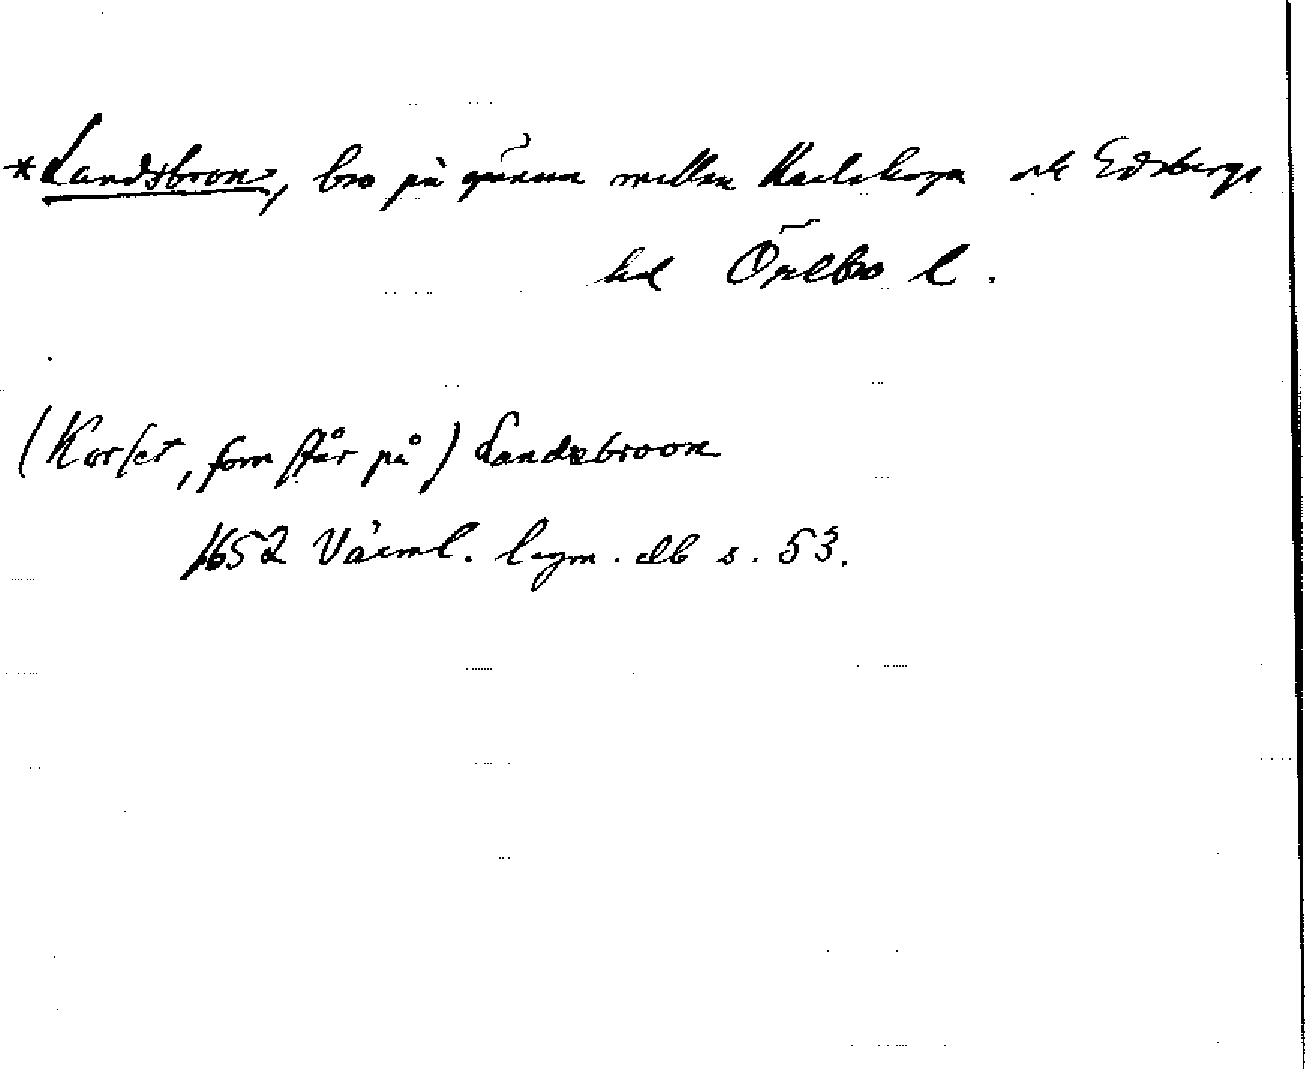 *Landsbron, bro på gränsen mellan Karlskoga och Edsbergs
hd Örebro l.
(Korset, som står på) Landzbroon
1652 Värml. lagm. db s. 53.